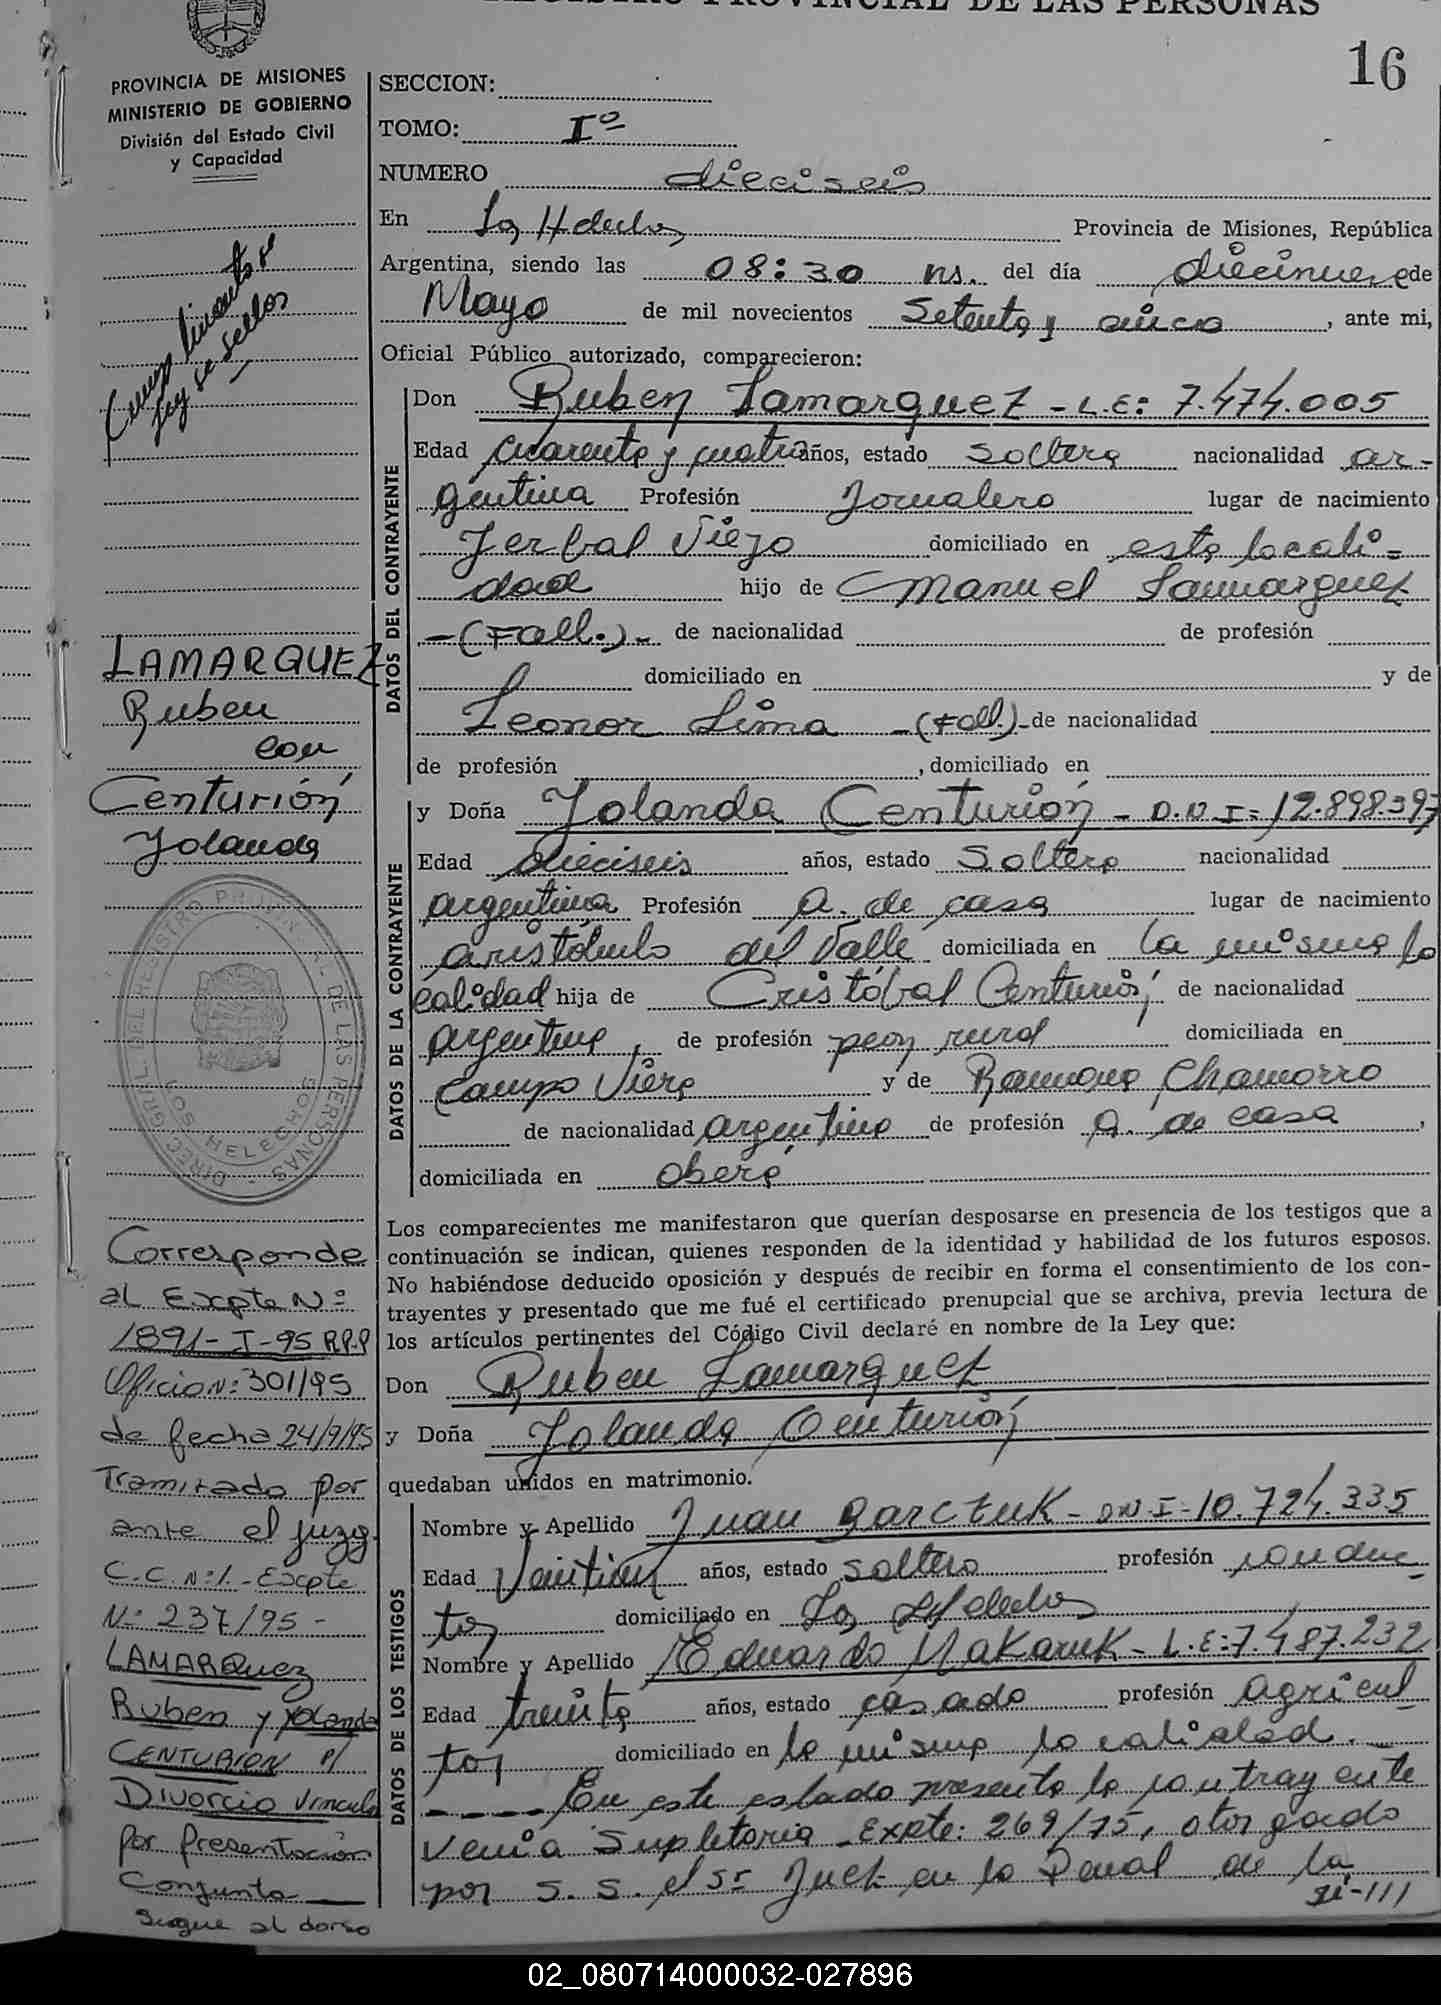 REGISTRO PROVINCIAL DE LAS PERSONAS
16
PROVINCIA DE MISIONES
MINISTERIO DE GOBIERNO
División del Estado Civil
y Capacidad
SECCION:
TOMO: Iº
NUMERO dieciseis
En Los Helechos Provincia de Misiones, República
Argentina, siendo las 08:30 hs. del día diecinueve de
Mayo de mil novecientos Setenta y cinco, ante mi,
Oficial Público autorizado, comparecieron:
DATOS DEL CONTRAYENTE
Don Ruben Lamarquez - L.E: 7.474.005
Edad cuarenta y cuatro años, estado soltero nacionalidad ar-
gentina Profesión Jornalero lugar de nacimiento
Yerbal Viejo domiciliado en esta locali=
dad hijo de Manuel Lamarquez
-(Fall.)- de nacionalidad de profesión
domiciliado en y de
Leonor Lima -(Fall.)- de nacionalidad
de profesión , domiciliado en
DATOS DE LA CONTRAYENTE
y Doña Yolanda Centurión - D.N.I= 12.898.397
Edad dieciseis años, estado Soltera nacionalidad
argentina Profesión a. de casa lugar de nacimiento
aristóbulo del Valle domiciliada en la misma lo
calidad hija de Cristóbal Centurión, de nacionalidad
argentina, de profesión peon rural domiciliada en
Campo Viera y de Ramona Chamorro
de nacionalidad argentina de profesión a. de casa,
domiciliada en oberá
Los comparecientes me manifestaron que querían desposarse en presencia de los testigos que a
continuación se indican, quienes responden de la identidad y habilidad de los futuros esposos.
No habiéndose deducido oposición y después de recibir en forma el consentimiento de los con-
trayentes y presentado que me fué el certificado prenupcial que se archiva, previa lectura de
los artículos pertinentes del Código Civil declaré en nombre de la Ley que:
Don Ruben Lamarquez
y Doña Yolanda Centurión
quedaban unidos en matrimonio.
DATOS DE LOS TESTIGOS
Nombre y Apellido Juan Barczuk - DN.I-10.724.335
Edad años, estado soltero profesión conduc
tor domiciliado en Los Helechos
Nombre y Apellido Eduardo Makaruk - L.E:7.487.232
Edad treinta años, estado casado profesión agricul
tor domiciliado en la misma localidad.
---- En este estado presenta la contrayente
Venia Supletoria - Expte: 269/75, otorgado
por S.S. el Sr Juez en lo Penal de la
LAMARQUEZ
Ruben
con
Centurión
Yolanda
DIREC. GRAL. DEL REGISTRO PROVINCIAL DE LAS PERSONAS
LOS HELECHOS
Corresponde
al Expte Nº
1891-I-95 R.P.P
Oficio Nº: 301/95
de fecha 24/7/95
Tramitado por
ante el juzg.
C.C. Nº:1.- Expte
Nº 237/95 -
LAMARQUEZ
Ruben y yolanda
CENTURION p/
Divorcio Vincula
por Presentación
Conjunta
Sigue al dorso
02_080714000032-027896